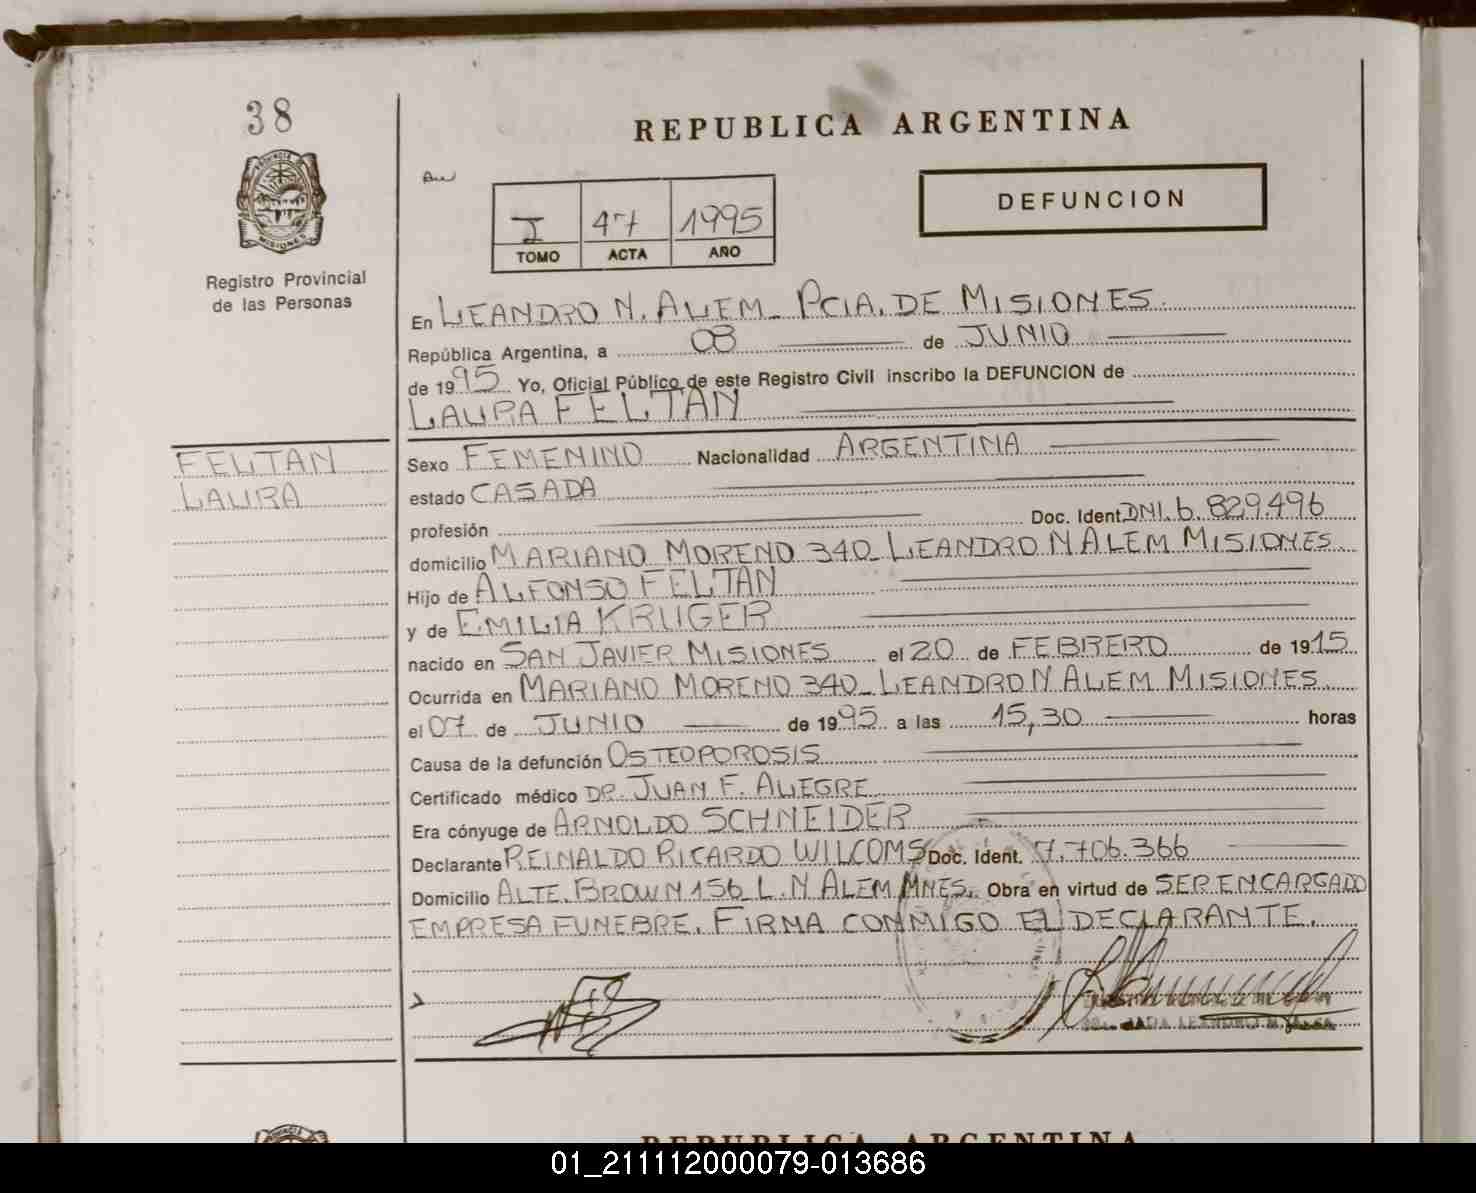 38
REPUBLICA ARGENTINA
DEFUNCION
I 47 1995
TOMO ACTA AÑO
MISIONES
Registro Provincial
de las Personas
En LEANDRO N. ALEM_ PCIA. DE MISIONES.
República Argentina, a 08 de JUNIO
de 1995 Yo, Oficial Público de este Registro Civil inscribo la DEFUNCION de
LAURA FELTAN
FELTAN
LAURA
Sexo FEMENINO Nacionalidad ARGENTINA
estado CASADA
profesión Doc. Ident. DNI. 6.829.496
domicilio MARIANO MORENO 340_ LEANDRO N ALEM MISIONES
Hijo de ALFONSO FELTAN
y de EMILIA KRUGER
nacido en SAN JAVIER MISIONES el 20 de FEBRERO de 1915
Ocurrida en MARIANO MORENO 340_ LEANDRO N ALEM MISIONES
el 07 de JUNIO de 1995 a las 15,30 horas
Causa de la defunción OSTEOPOROSIS
Certificado médico DR. JUAN F. ALEGRE
Era cónyuge de ARNOLDO SCHNEIDER
Declarante REINALDO RICARDO WILCOMS Doc. Ident. 7.706.366
Domicilio ALTE. BROWN 156_ L. N ALEM MNES. Obra en virtud de SER ENCARGADO
EMPRESA FUNEBRE. FIRMA CONMIGO EL DECLARANTE.
REPUBLICA ARGENTINA
01_211112000079-013686